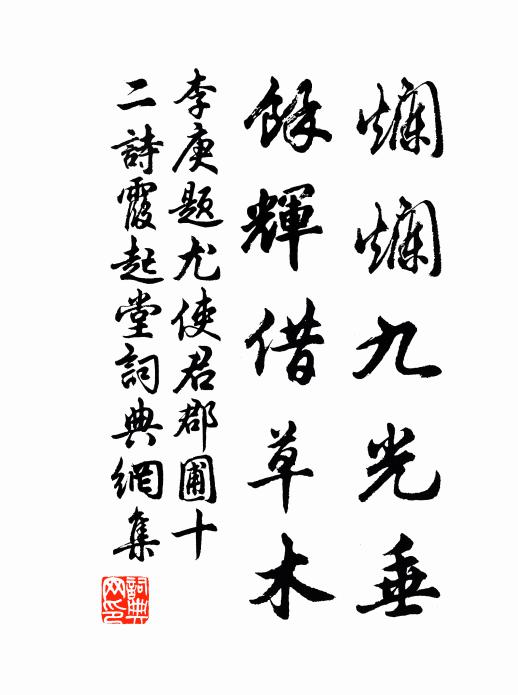 爛爛九光垂
餘輝借草木
李庚題尤使君郡圃十
二詩霞起堂詞典網集
詞典
网印